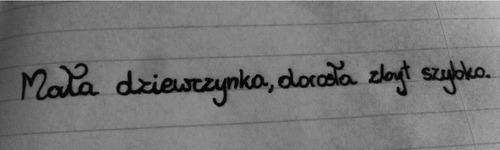 Mała dziewczynka, dorosła zbyt szybko.